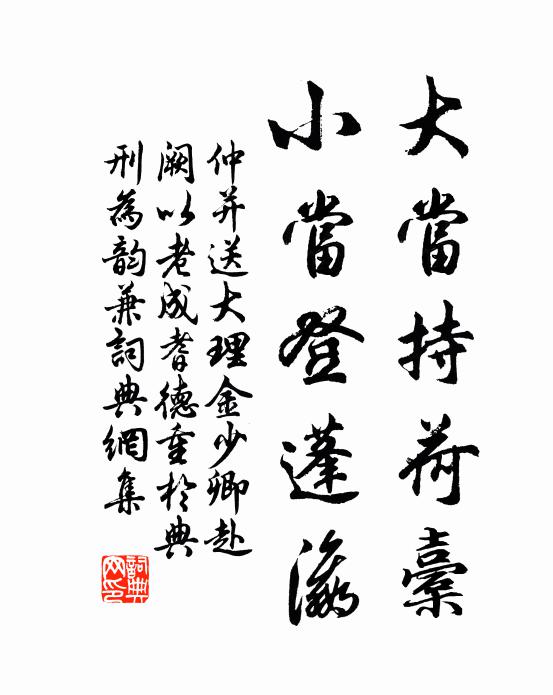 大當持荷橐
小當登蓬瀛
仲并送大理金少卿赴
闕以老成耆德重於典
刑為韵兼詞典網集
詞典網印